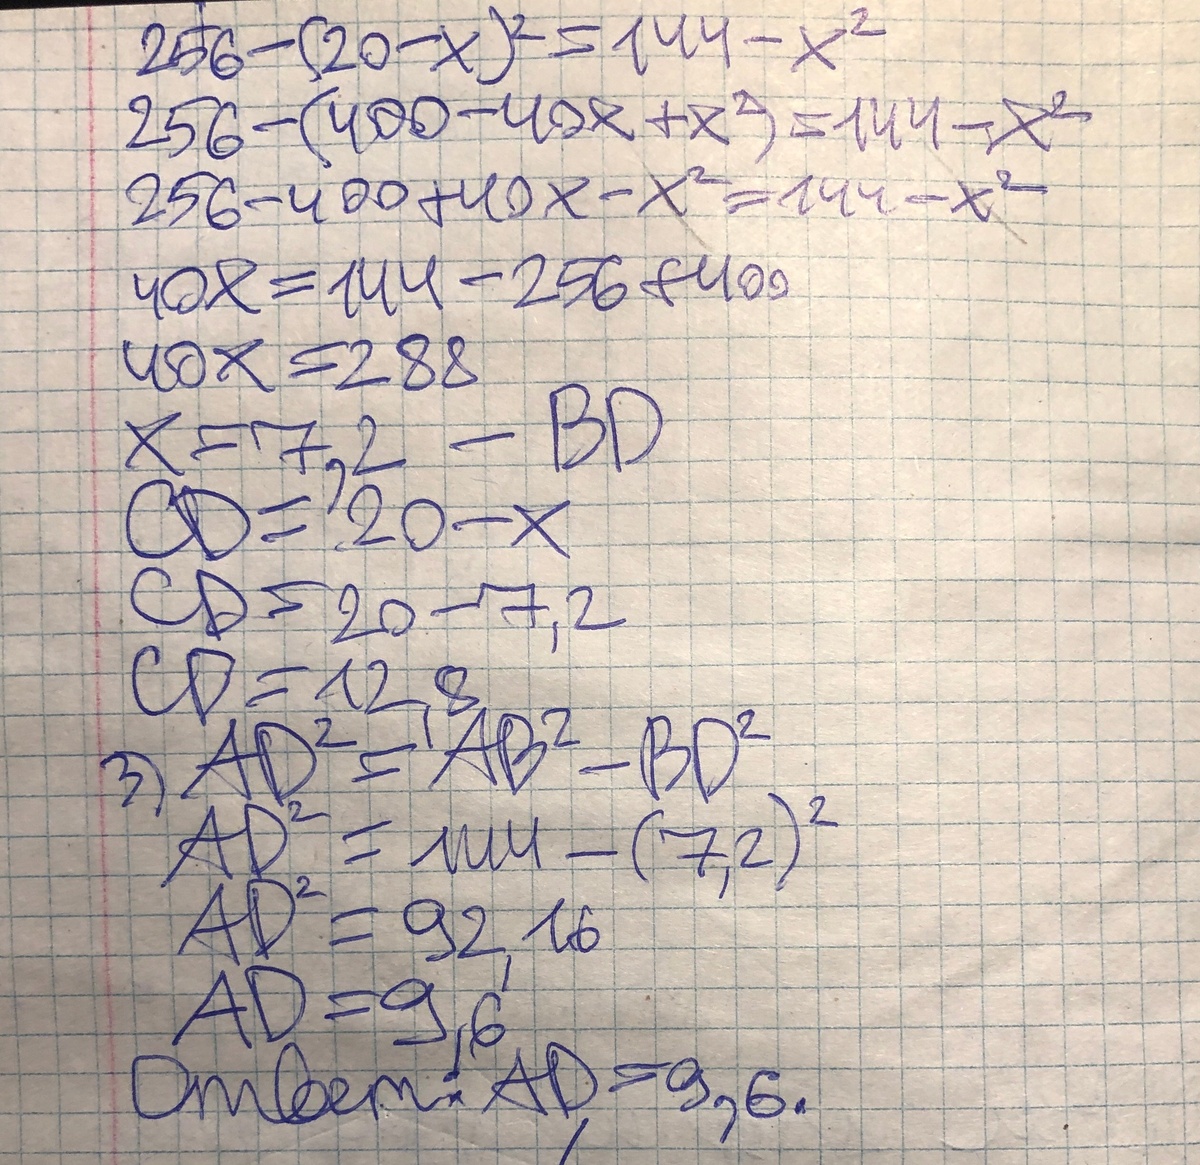 256-(20-x)²=144-x²
256-(400-40x+x²)=144-x²
256-400+40x-x²=144-x²
40x=144-256+400
40x=288
x=7,2 - BD
CD=20-x
CD=20-7,2
CD=12,8
3) AD²=AB²-BD²
AD²=144-(7,2)²
AD²=92,16
AD=9,6
Ответ: AD=9,6.